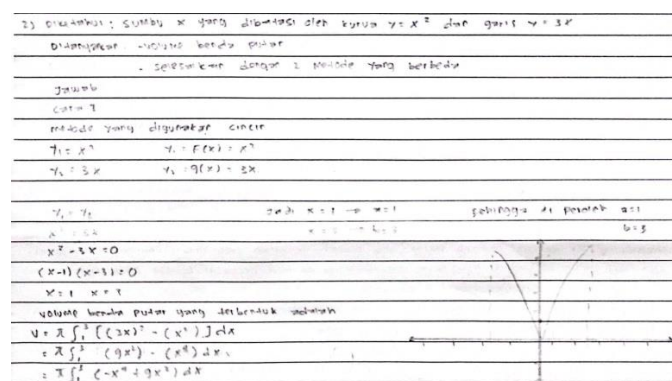 2) Diketahui : Sumbu x yang dibatasi oleh kurva y = x² dan garis y = 3x
Ditanyakan - volume benda putar
- selesaikan dengan 2 metode yang berbeda
Jawab
cara 1
metode yang digunakan cincin
y₁ = x² y₁ = F(x) = x²
y₂ = 3x y₂ = g(x) = 3x
y₁ = y₂ Jadi x = 1 → a = 1 sehingga di peroleh a = 1
x² = 3x b = 3
x² - 3x = 0
(x-1) (x-3) = 0
x = 1 x = 3
volume benda putar yang terbentuk adalah
V = π ∫₁³ [(3x)² - (x²)] dx
= π ∫₁³ (9x²) - (x⁴) dx
= π ∫₁³ (-x⁴ + 9x²) dx